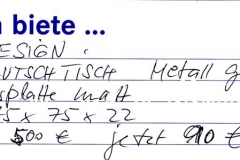 h biete ...
ESIGN.
UTSCHTISCH Metall g
splatte matt
5 x 75 x 22
500 € jetzt 90 €